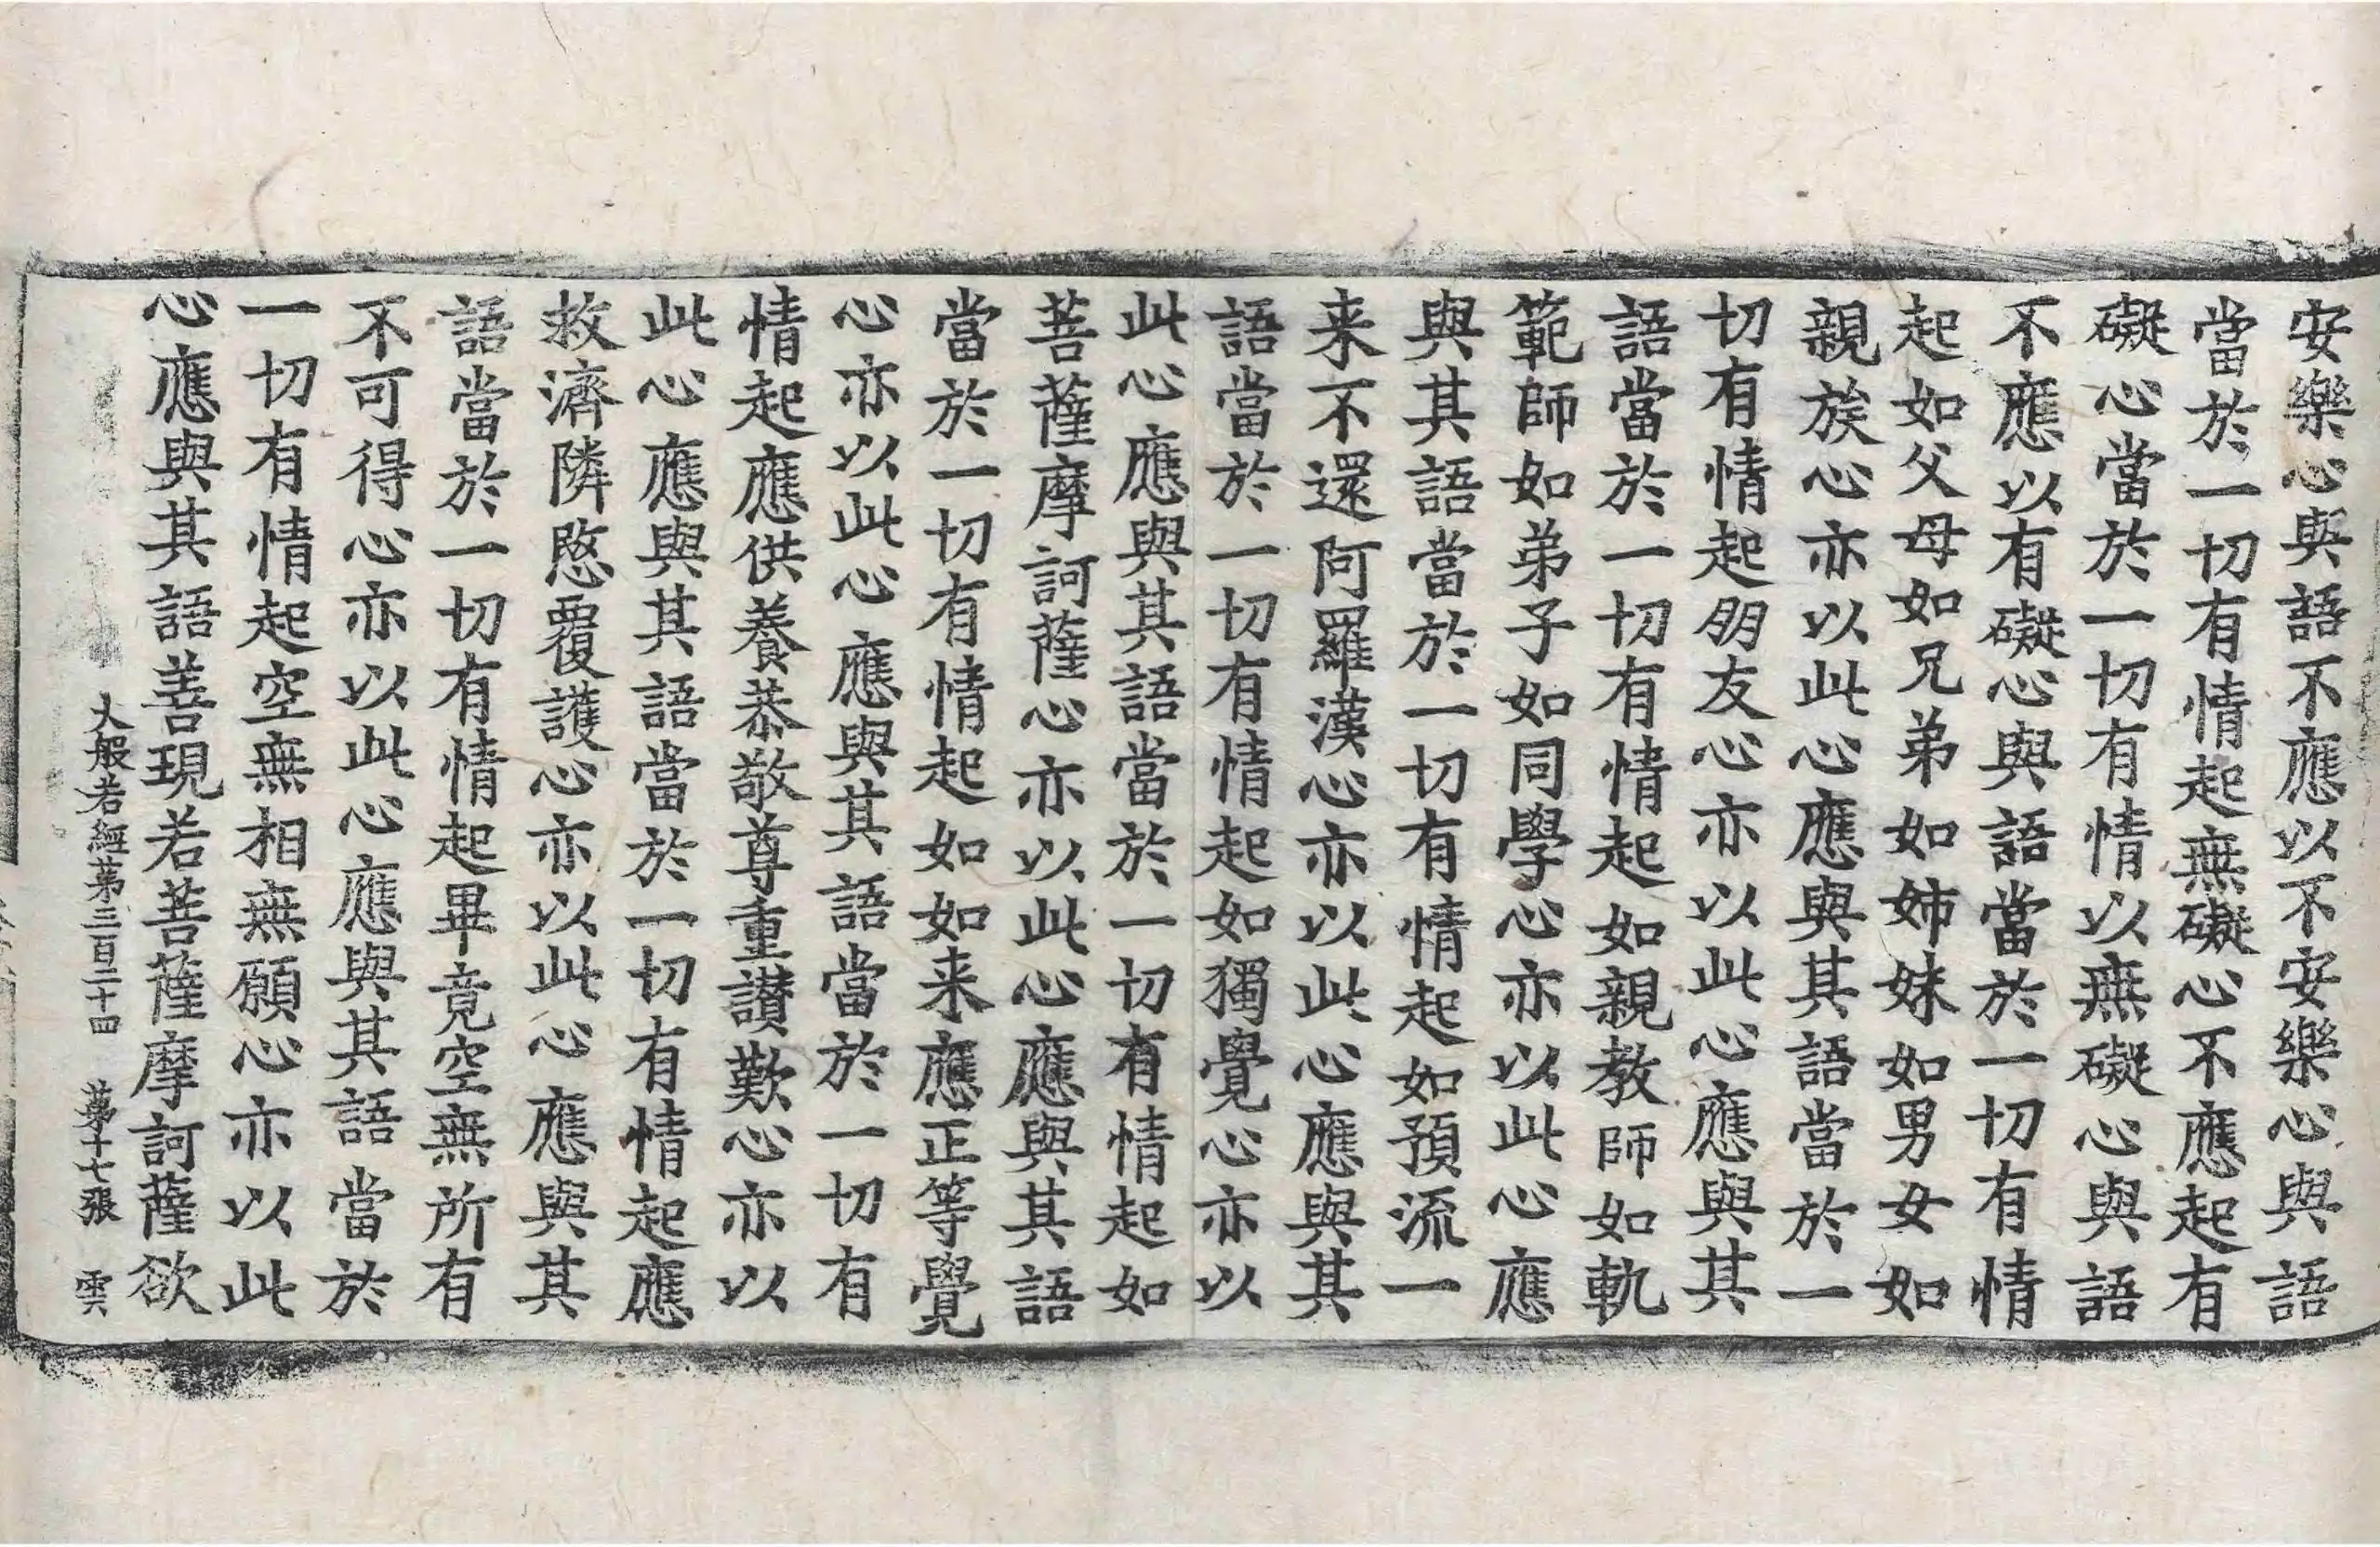 安樂心與語不應以不安樂心與語
當於一切有情起無礙心不應起有
礙心當於一切有情以無礙心與語
不應以有礙心與語當於一切有情
起如父母如兄弟如姉妹如男女如
親族心亦以此心應與其語當於一
切有情起朋友心亦以此心應與其
語當於一切有情起如親教師如軌
範師如弟子如同學心亦以此心應
與其語當於一切有情起如預流一
来不還阿羅漢心亦以此心應與其
語當於一切有情起如獨覺心亦以
此心應與其語當於一切有情起如
菩薩摩訶薩心亦以此心應與其語
當於一切有情起如如来應正等覺
心亦以此心應與其語當於一切有
情起應供養恭敬尊重讃歎心亦以
此心應與其語當於一切有情起應
救濟隣愍覆護心亦以此心應與其
語當於一切有情起畢竟空無所有
不可得心亦以此心應與其語當於
一切有情起空無相無願心亦以此
心應與其語善現若菩薩摩訶薩欲
大般若經苐三百二十四 苐十七張 雲